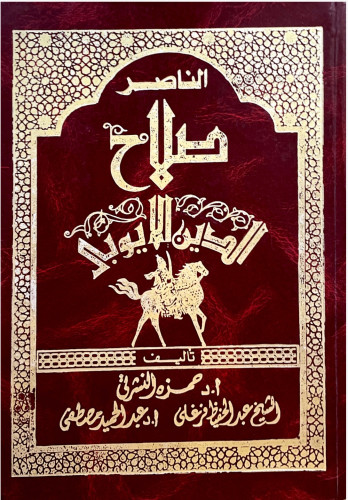 الناصر
صلاح
الدين الأيوبى
تأليف
أ.د حمزه النشرتى
الشيخ عبد الحفيظ فرغلى أ.د عبد الحميد مصطفى